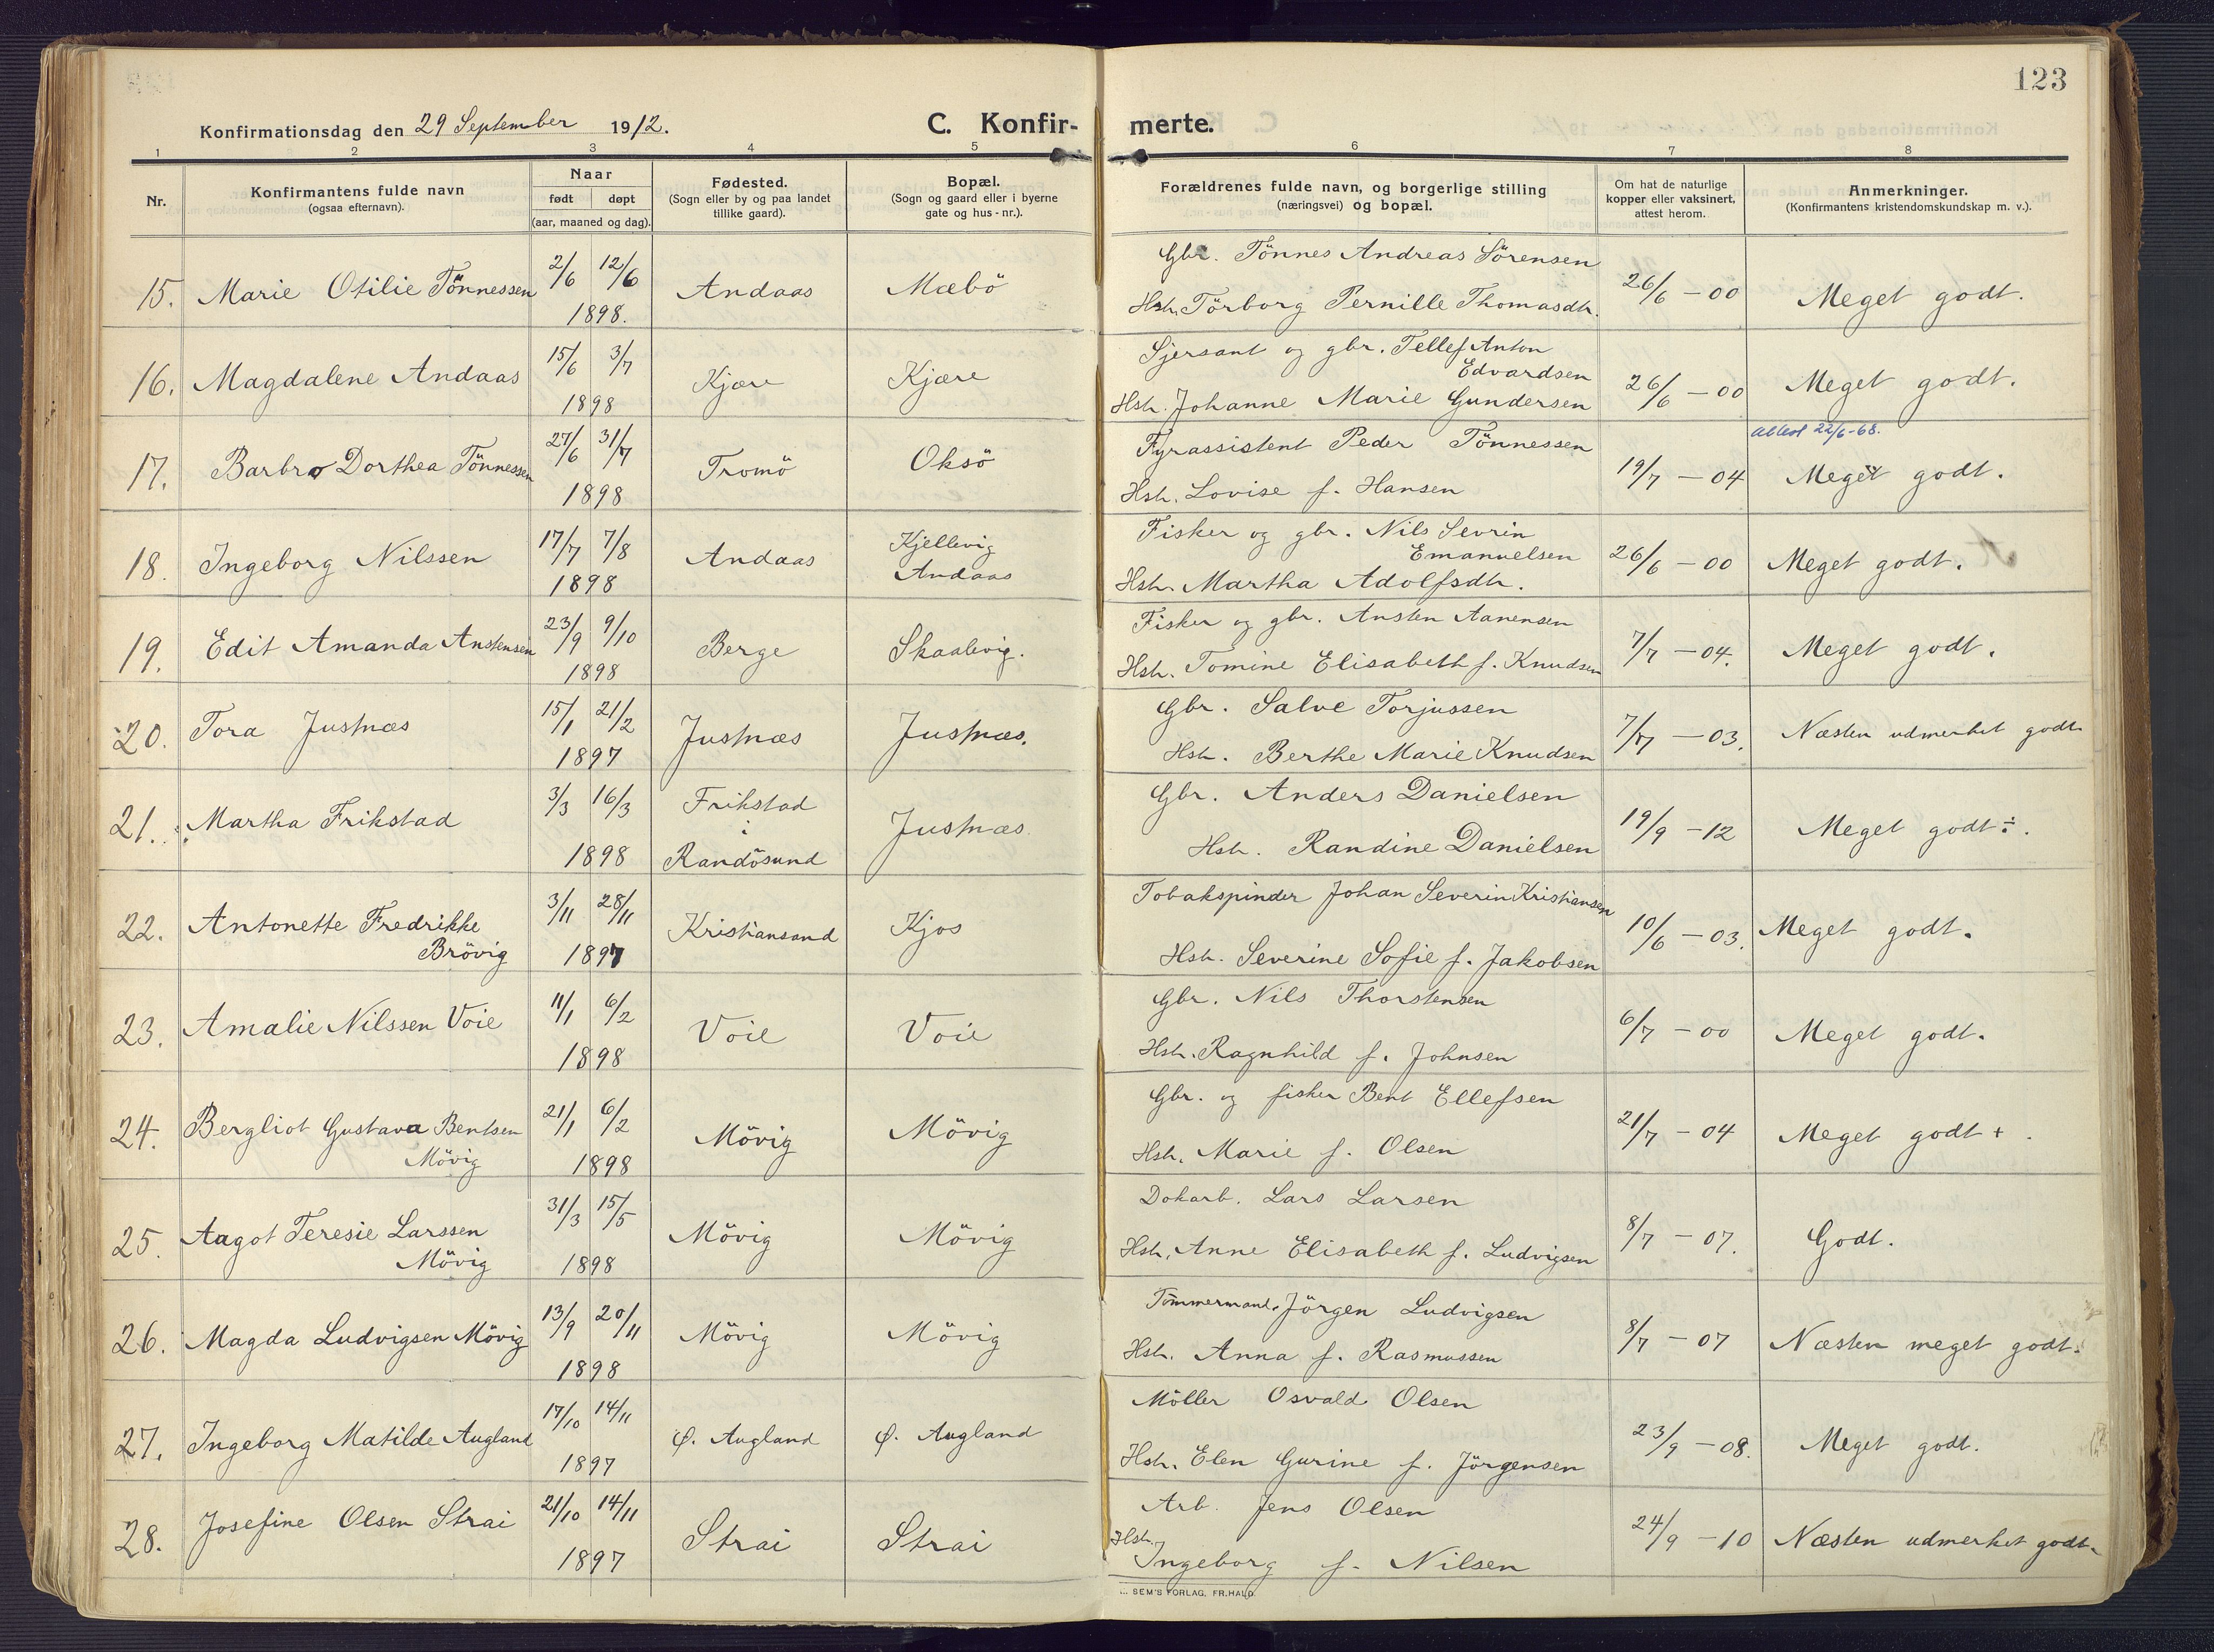 123
Konfirmationsdag den 29 September 1912.
C. Konfir-
merte.
1 2 3 4 5 6 7 8
Nr.
Konfirmantens fulde navn
(ogsaa efternavn).
Naar
født døpt
(aar, maaned og dag).
Fødested.
(Sogn eller by og paa landet
tillike gaard).
Bopæl.
(Sogn og gaard eller i byerne
gate og hus-nr.).
Forældrenes fulde navn, og borgerlige stilling
(næringsvei) og bopæl.
Om hat de naturlige
kopper eller vaksinert,
attest herom.
Anmerkninger.
(Konfirmantens kristendomskundskap m. v.).
Gbr. Tönnes Andreas Sörensen
15. Marie Otilie Tönnessen 2/6 12/6 Andaas Mæbö 26/6 - 00 Meget godt.
1898. Hstr. Törborg Pernille Thomasdtr.
Sjersant og gbr. Tellef Anton
Edvardsen
16. Magdalene Andaas 15/6 3/7 Kjære Kjære 26/6 - 00 Meget godt.
1898 Hstr. Johanne Marie Gundersen
Attest 22/6-68.
Fyrassistent Peder Tönnessen
17. Barbro Dorthea Tönnessen 27/6 31/7 Tromö Oksö 19/7 - 04 Meget godt.
1898 Hstr. Lovise f. Hansen
Fisker og gbr. Nils Sevrin
Emanuelsen
18. Ingeborg Nilssen 17/7 7/8 Andaas Kjellevig
Andaas 26/6 - 00 Meget godt.
1898 Hstr. Martha Adolfsdtr.
Fisker og gbr. Ansten Aanensen
19. Edit Amanda Anstensen 23/9 9/10 Berge Skaalevig. 7/7 - 04. Meget godt.
1898 Hstr. Tomine Elisabeth f. Knudsen
Gbr. Salve Torjussen
20. Tora Justnæs 15/1 21/2 Justnæs Justnæs. 7/7 - 03. Næsten udmerket godt
1897 Hstr. Berthe Marie Knudsen
Gbr. Anders Danielsen
21. Martha Frikstad 3/3 16/3 Frikstad
i
Randösund Justnæs. 19/9 - 12 Meget godt ÷.
1898 Hstr. Randine Danielsen
Tobakspinder Johan Severin Kristiansen
22. Antonette Fredrikke
Brövig 3/11 28/11 Kristiansand Kjos 10/6 - 03. Meget godt.
1897 Hstr. Severine Sofie f. Jakobsen
Gbr. Nils Thorstensen
23. Amalie Nilssen Voie 11/1 6/2 Voie Voie 6/7 - 00 Meget godt.
1898 Hstr. Ragnhild f. Johnsen
Gbr. og fisker Bent Ellefsen
24. Bergliot Gustava Bentsen
Mövig 21/1 6/2 Mövig Mövig 21/7 - 04 Meget godt + .
1898 Hstr. Marie f. Olsen
Dokarb. Lars Larsen
25. Aagot Teresie Larssen
Mövig 31/3 15/5 Mövig Mövig 8/7 - 07. Godt.
1898 Hstr. Anne Elisabeth f. Ludvigsen
Tömmermand. Jörgen Ludvigsen
26. Magda Ludvigsen Mövig 13/9 20/11 Mövig Mövig 8/7 - 07 Næsten meget godt.
1898 Hstr. Anna f. Rasmussen
Möller Osvald Olsen
27. Ingeborg Matilde Augland 17/10 14/11 Ø. Augland Ø. Augland 23/9 - 08. Meget godt.
1897 Hstr. Elen Gurine f. Jörgensen
Arb. Jens Olsen
28. Josefine Olsen Strai 21/10 14/11 Strai Strai 24/9 - 10 Næsten udmerket godt.
1897 Hstr. Ingeborg f. Nilsen
SEM'S FORLAG, FR.HALD.